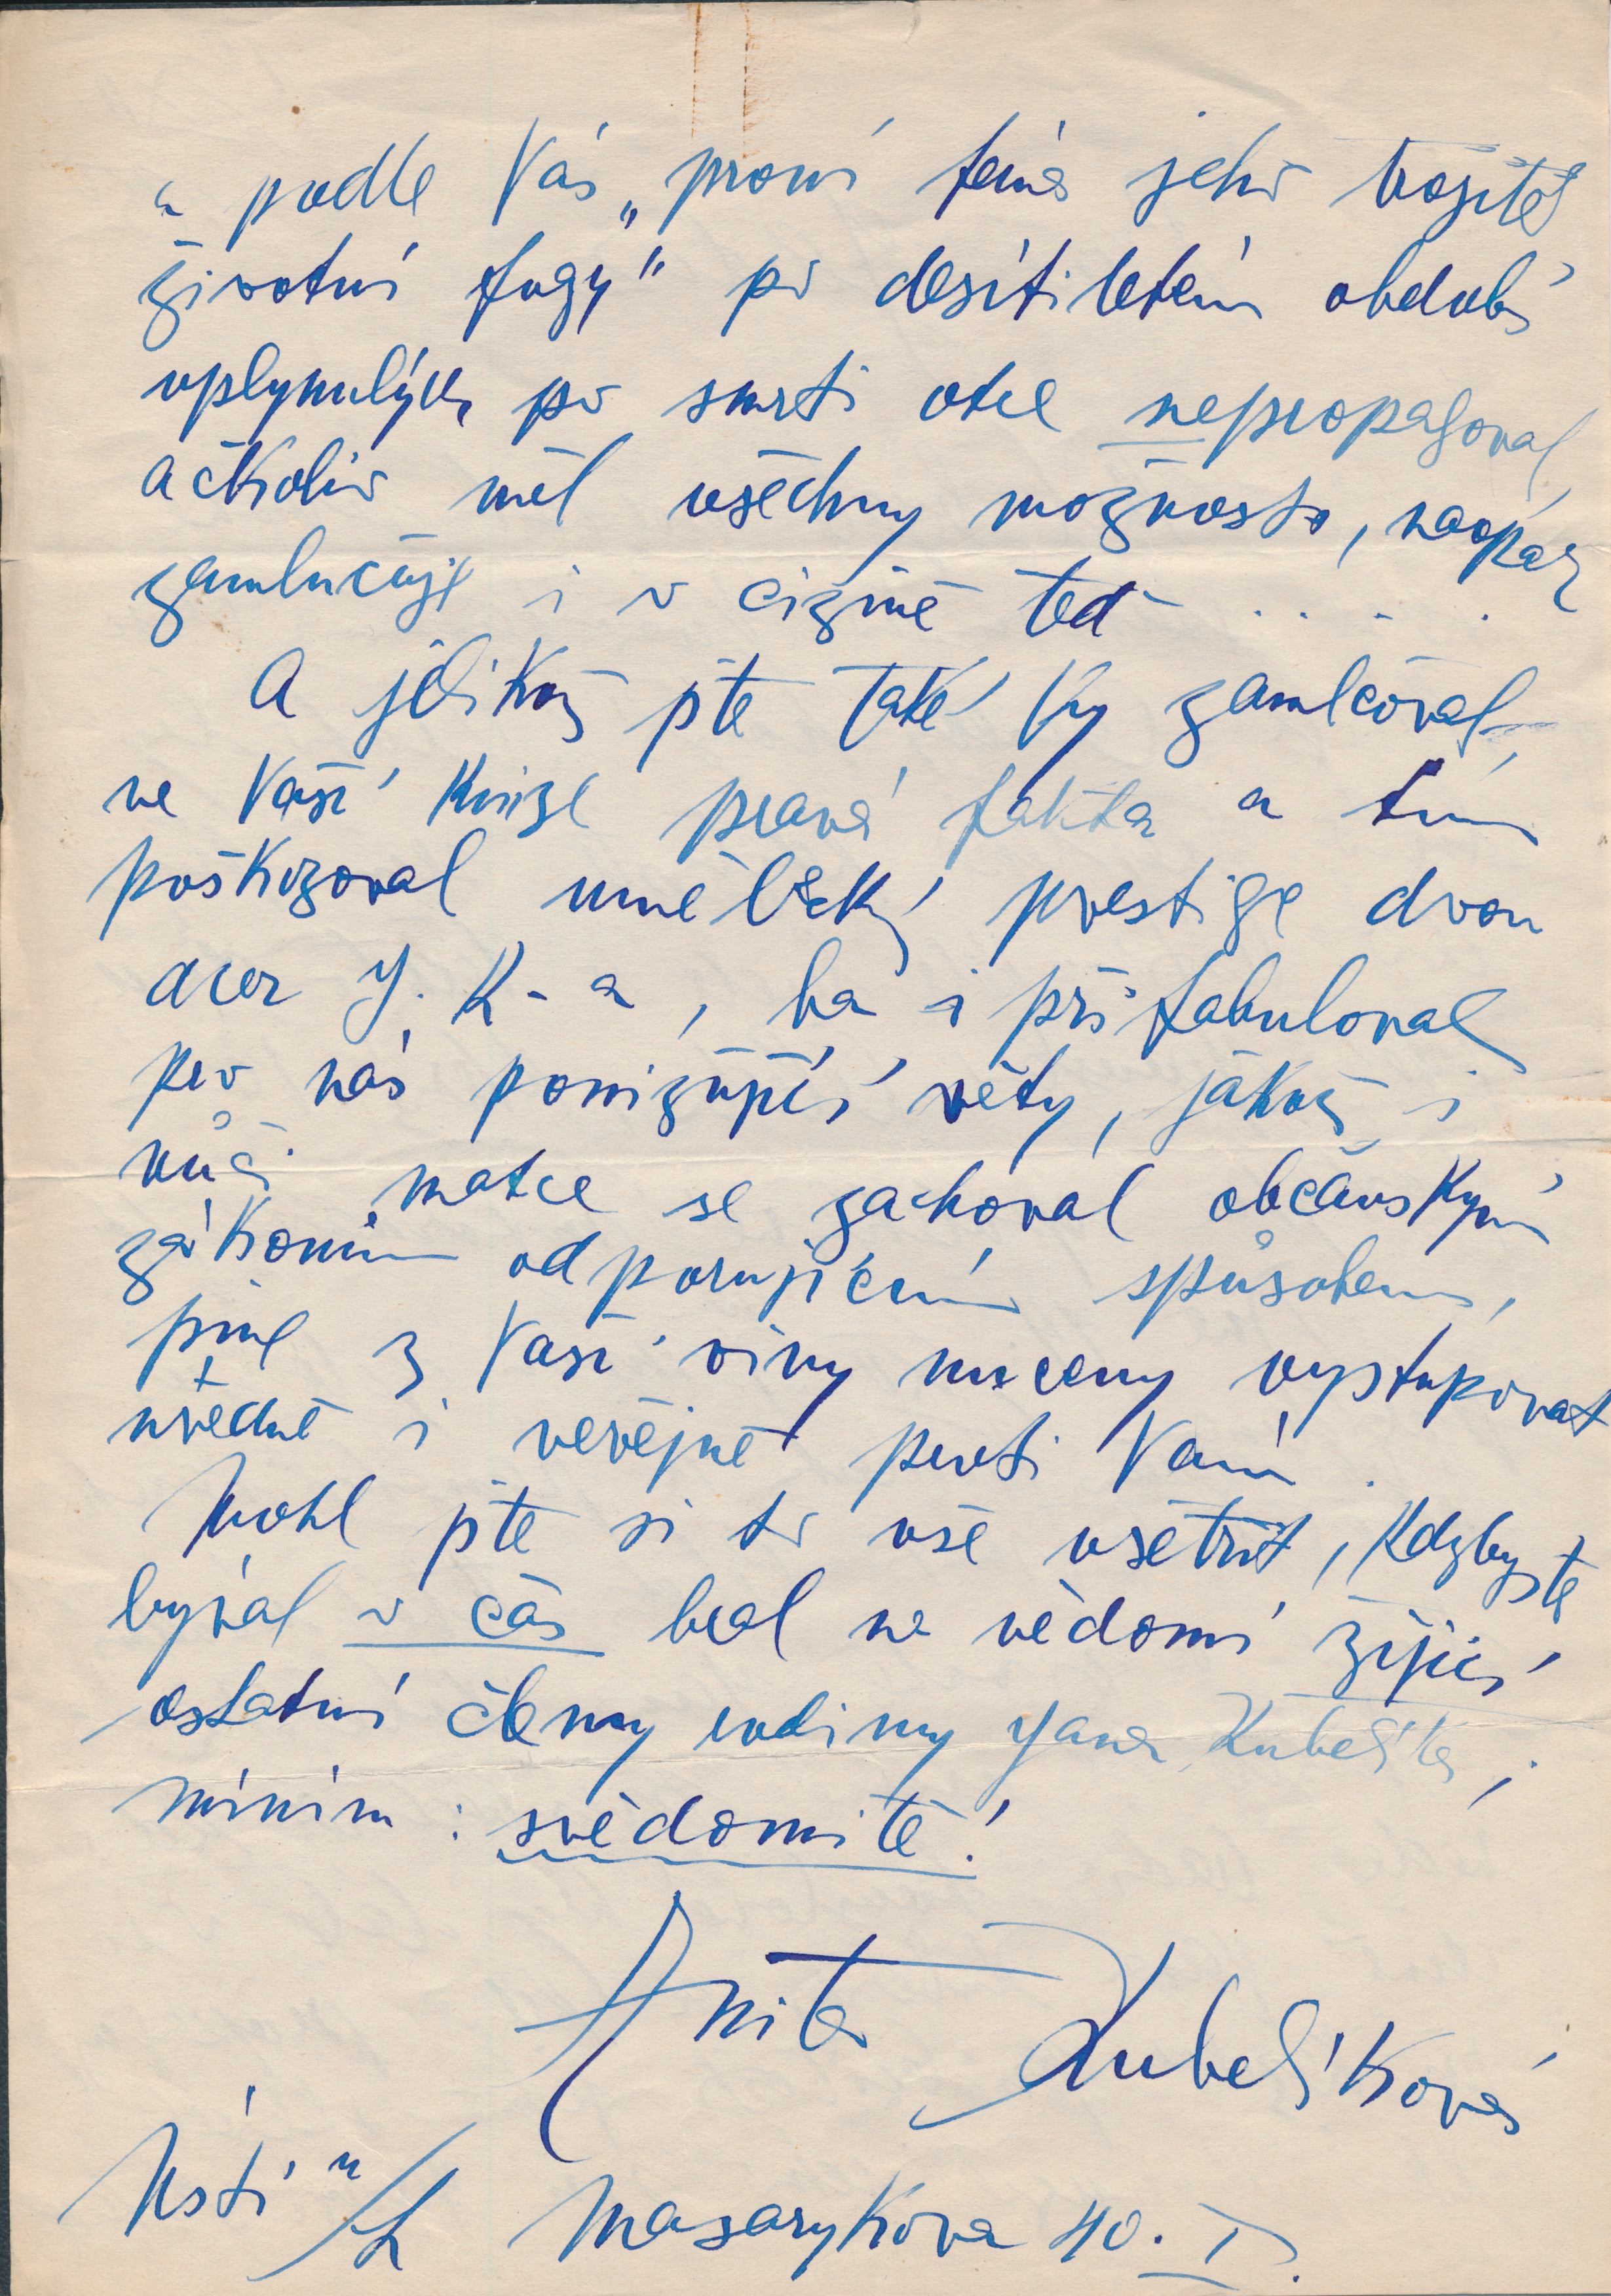 a podle Vás „první téma jeho trojité
životní fugy" po desítiletém období
uplynulých po smrti otce nepropagoval
ačkoliv měl všechny možnosti, naopak
zamlučuje i v cizině teď - . . . .
A jelikož jste také Vy zamlčoval
ve Vaší knize pravá fakta a tím
poškozoval umělecký prestige dvou
dcer J. K-a, ba i přifabuloval
pro nás ponižující věty, jakož i
vůči matce se zachoval občanským
zákonům odporujícím spůsobem,
jsme z Vaší viny nuceny vystupovat
úředně i veřejně proti Vám.
Mohl jste si to vše ušetřit, kdybyste
býval v čas bral na vědomí žijící
ostatní členy rodiny Jana Kubelíka,
míním : svědomitě!
Anita Kubelíková
Ústí n/L Masarykova 40. I.